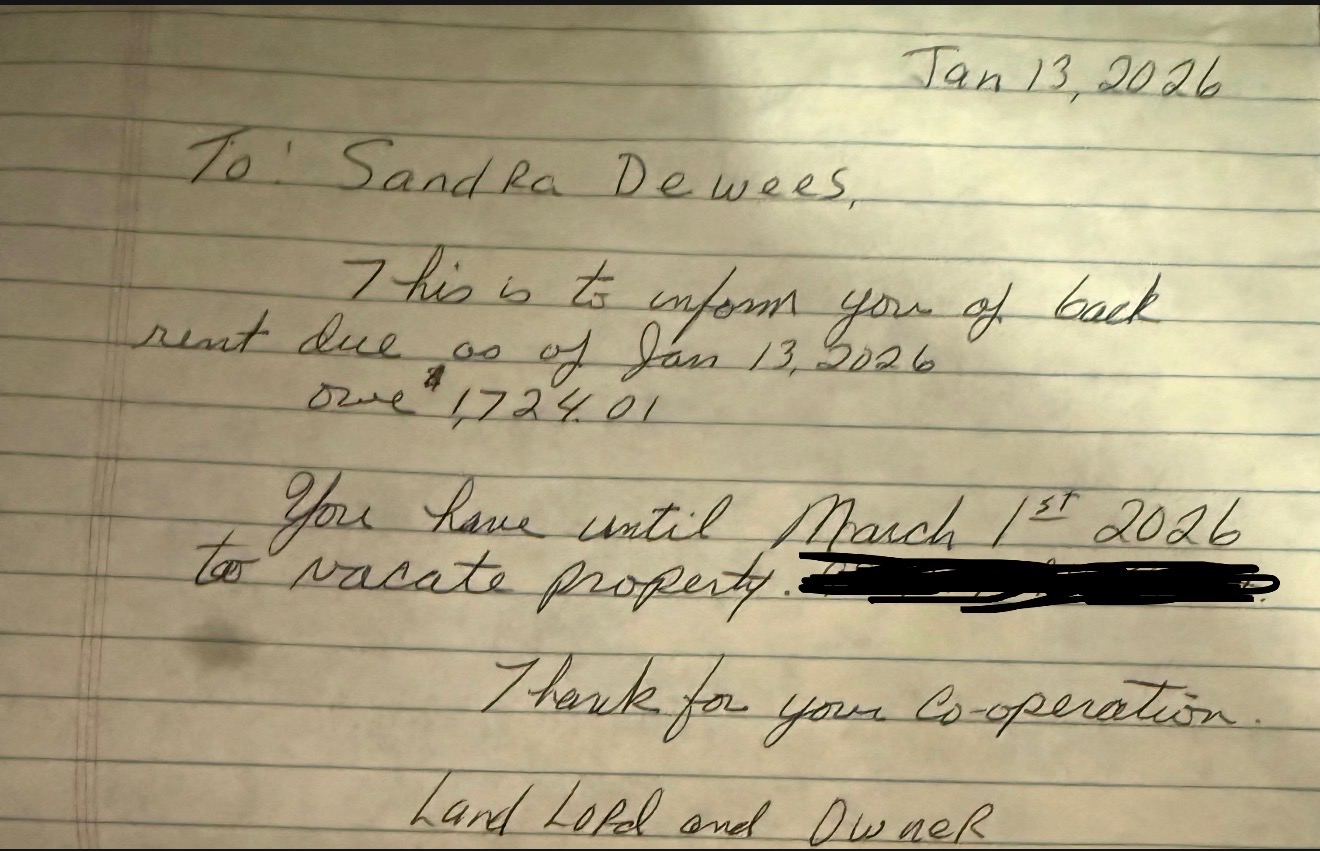 Jan 13, 2026
To: Sandra Dewees,
This is to inform you of back
rent due as of Jan 13, 2026
owe $1,724.01
You have until March 1st 2026
to vacate property.
Thank for your Co-operation.
Land Lord and Owner